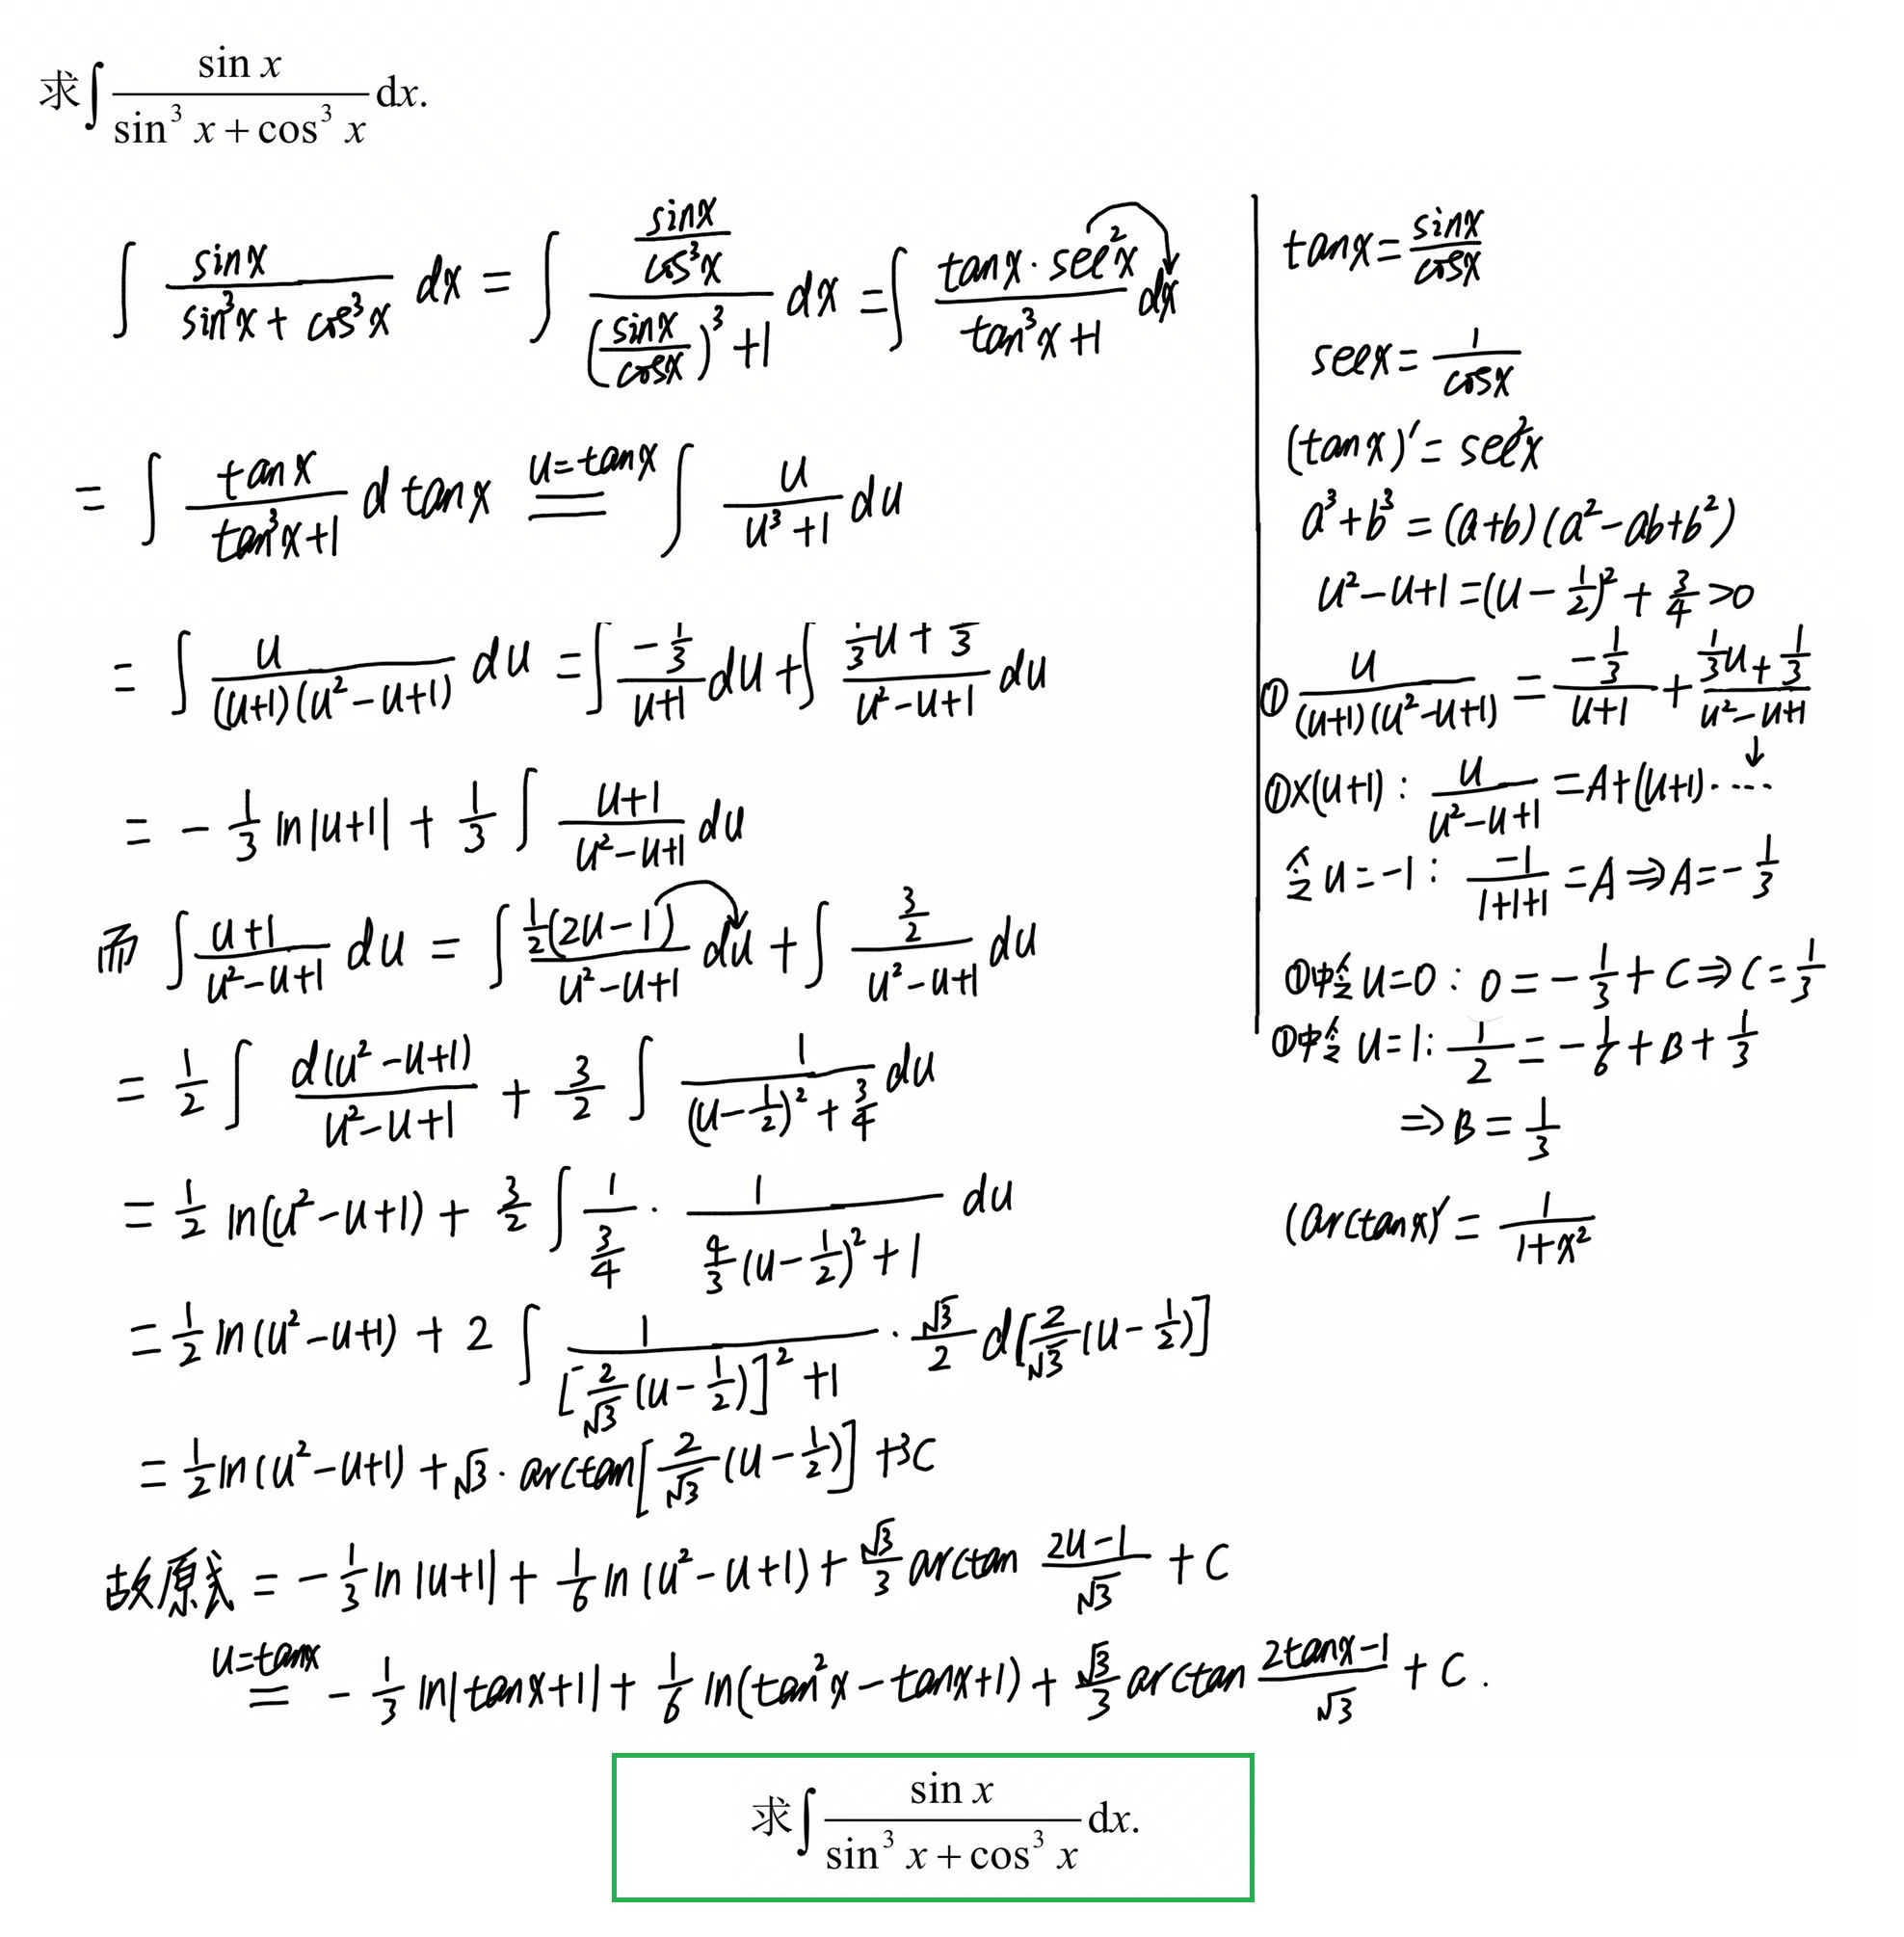 求∫ sin x / (sin³ x + cos³ x) dx.
∫ sinx / (sin³x + cos³x) dx = ∫ (sinx/cos³x) / ((sinx/cosx)³ + 1) dx = ∫ (tanx · sec²x) / (tan³x + 1) dx
= ∫ tanx / (tan³x+1) d tanx =(u=tanx)= ∫ u / (u³+1) du
= ∫ u / ((u+1)(u²-u+1)) du = ∫ (-1/3) / (u+1) du + ∫ (1/3 u + 1/3) / (u²-u+1) du
= - 1/3 ln|u+1| + 1/3 ∫ (u+1) / (u²-u+1) du
而 ∫ (u+1) / (u²-u+1) du = ∫ 1/2(2u-1) / (u²-u+1) du + ∫ (3/2) / (u²-u+1) du
= 1/2 ∫ d(u²-u+1) / (u²-u+1) + 3/2 ∫ 1 / ((u-1/2)² + 3/4) du
= 1/2 ln(u²-u+1) + 3/2 ∫ 1/(3/4) · 1 / (4/3 (u-1/2)² + 1) du
= 1/2 ln(u²-u+1) + 2 ∫ 1 / ([2/√3 (u-1/2)]² + 1) · √3/2 d[2/√3 (u-1/2)]
= 1/2 ln(u²-u+1) + √3 · arctan[2/√3 (u-1/2)] + 3C
故原式 = - 1/3 ln|u+1| + 1/6 ln(u²-u+1) + √3/3 arctan (2u-1)/√3 + C
=(u=tanx)= - 1/3 ln|tanx+1| + 1/6 ln(tan²x-tanx+1) + √3/3 arctan (2tanx-1)/√3 + C.
tanx = sinx/cosx
secx = 1/cosx
(tanx)' = sec²x
a³+b³ = (a+b)(a²-ab+b²)
u²-u+1 = (u-1/2)² + 3/4 >0
① u / ((u+1)(u²-u+1)) = (-1/3) / (u+1) + (1/3 u + 1/3) / (u²-u+1)
↓
①×(u+1) : u / (u²-u+1) = A+(u+1)·····
令 u=-1 : -1 / (1+1+1) = A ⇒ A = - 1/3
①中令 u=0 : 0 = - 1/3 + C ⇒ C = 1/3
①中令 u=1 : 1/2 = - 1/6 + B + 1/3
⇒ B = 1/3
(arctanx)' = 1 / (1+x²)
求∫ sin x / (sin³ x + cos³ x) dx.